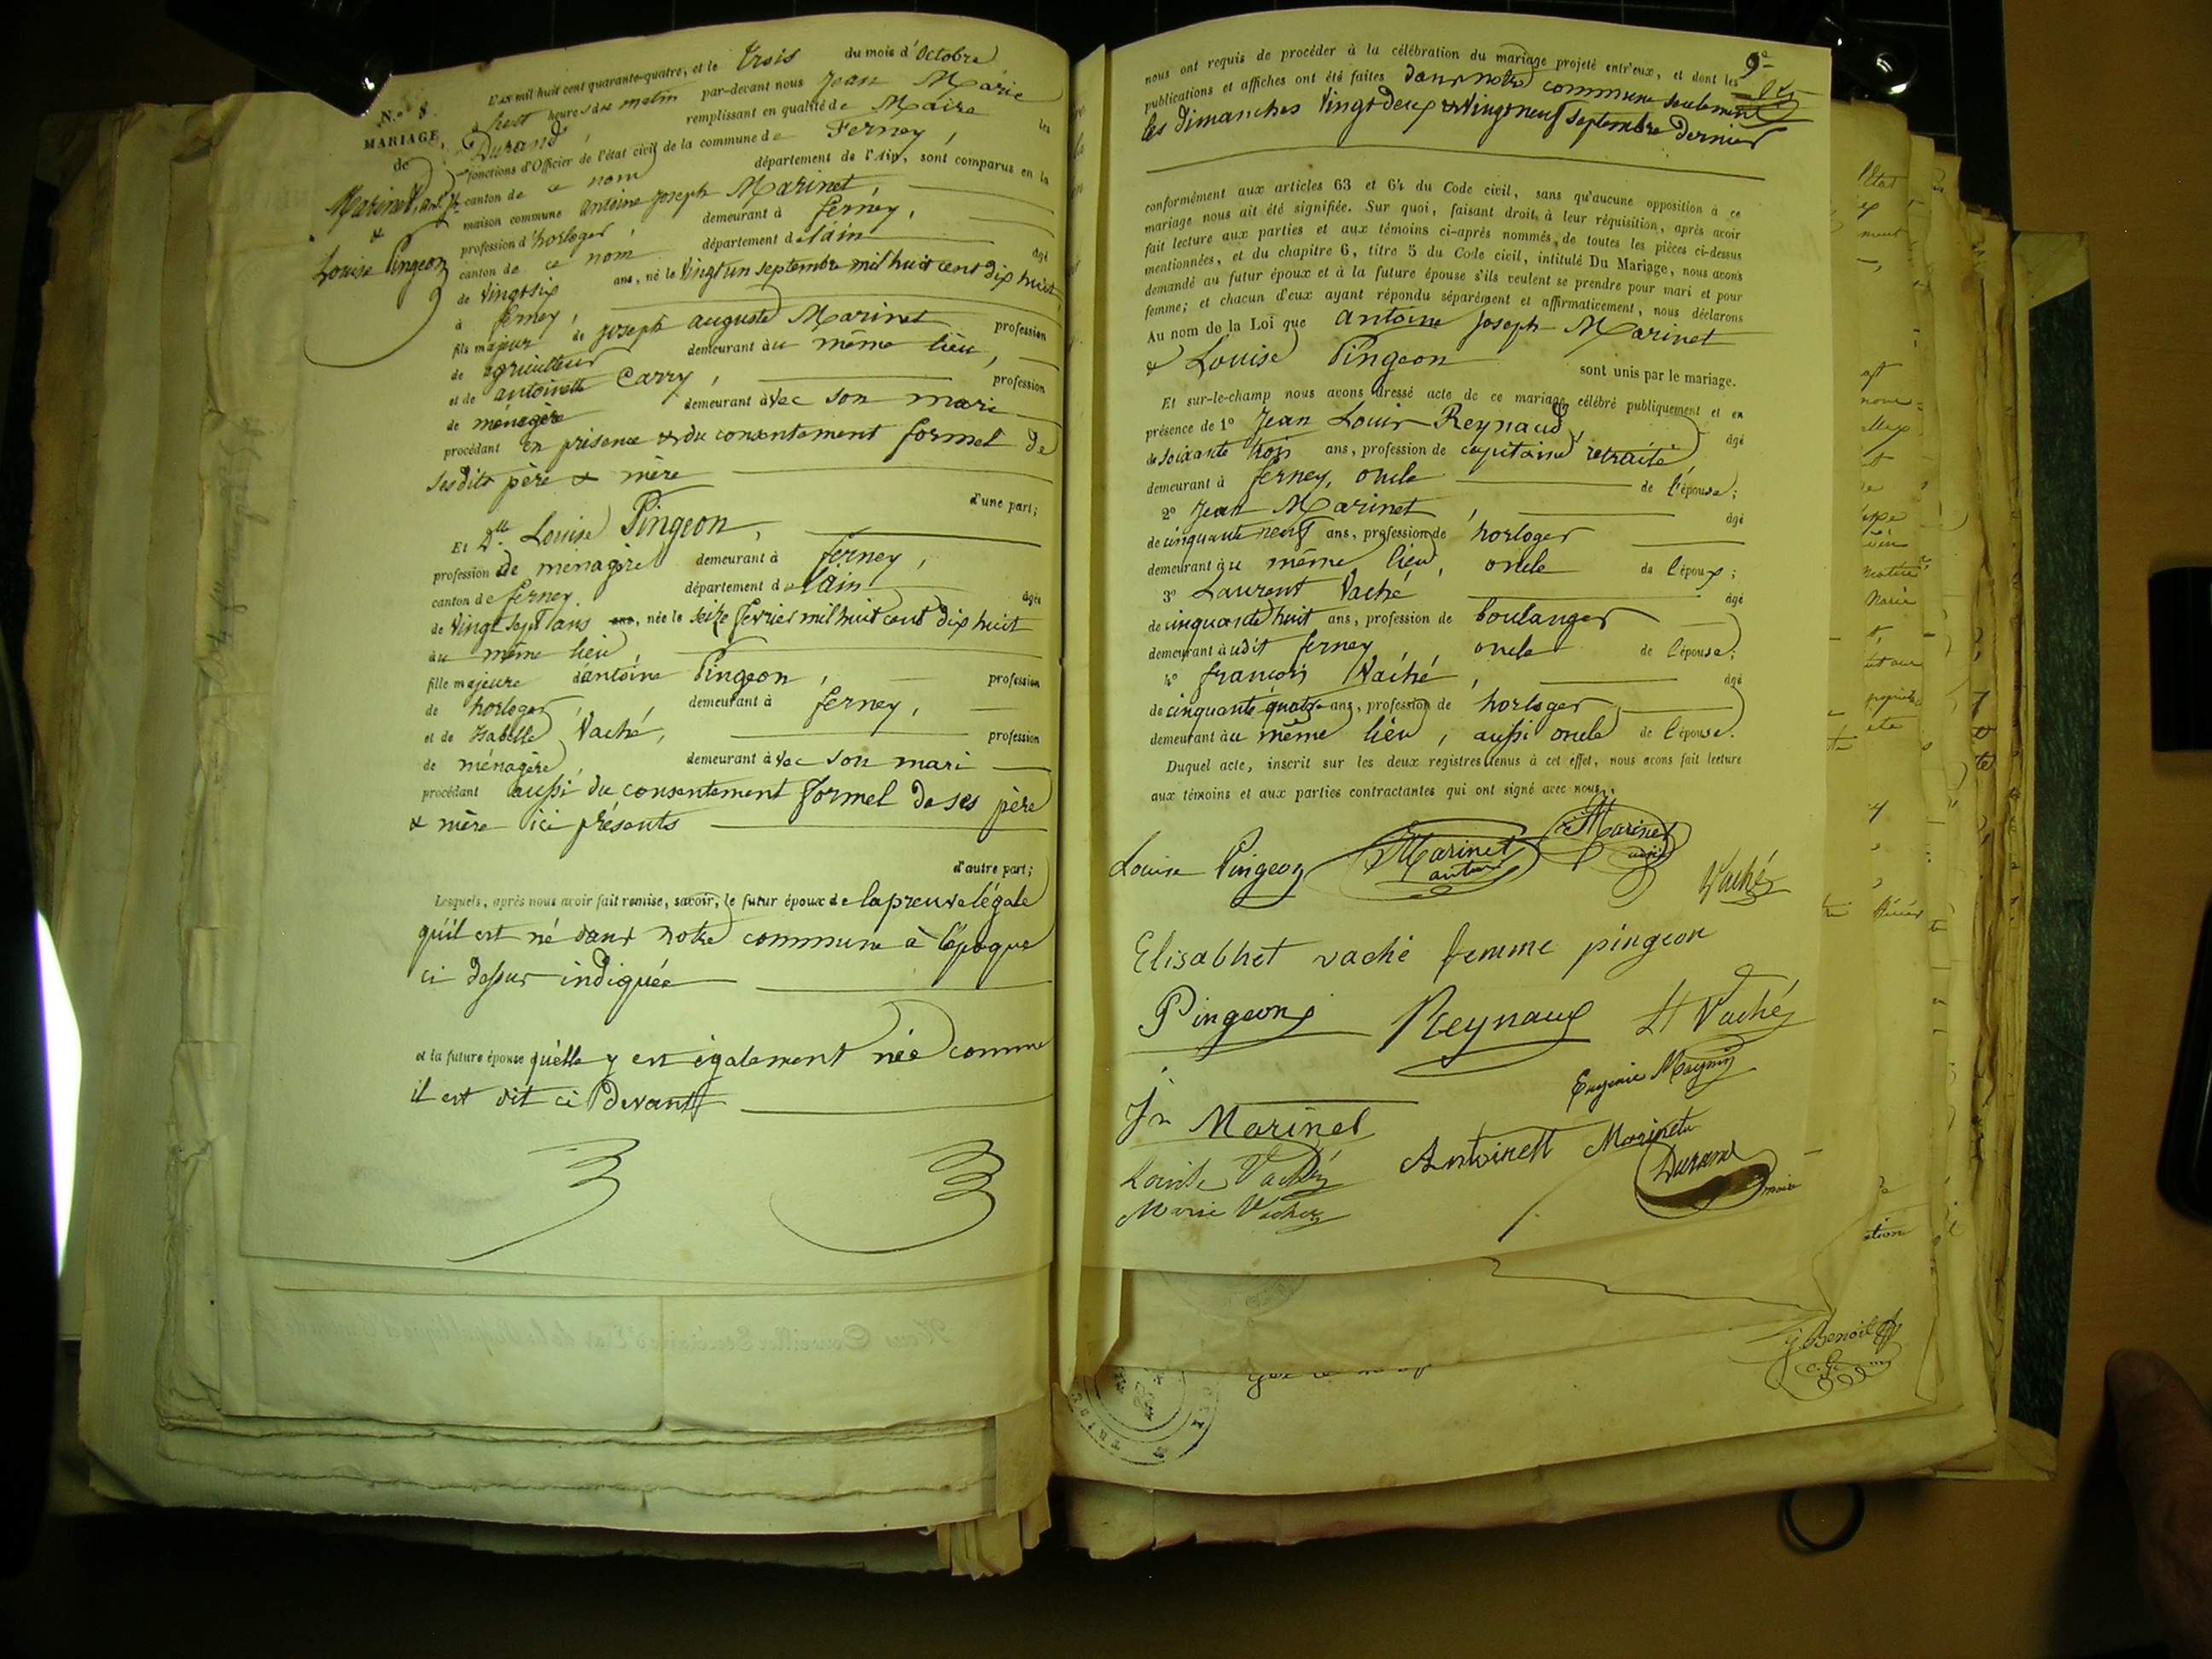 N.º 8
MARIAGE
de
Marinet, ant. jh
&
Louise Pingeon
L'an mil huit cent quarante-quatre, et le trois du mois d'Octobre
à huit heures du matin par-devant nous Jean Marie
Durand remplissant en qualité de Maire les
fonctions d'Officier de l'état civil de la commune de Ferney,
canton de ce nom département de l'Ain, sont comparus en la
maison commune antoine joseph Marinet,
profession d'horloger, demeurant à ferney,
canton de ce nom département de lain âgé
de vingt six ans, né le vingt un septembre mil huit cent dix huit
à ferney,
fils majeur de joseph auguste Marinet profession
de agriculteur demeurant au même lieu,
et de antoinette Carry, profession
de ménagère demeurant avec son mari
procédant en présence & du consentement formel de
sesdits père & mère
d'une part;
Et Dlle Louise Pingeon,
profession de ménagère demeurant à ferney,
canton de ferney département de lain âgée
de vingt sept ans ans, née le seize fevrier mil huit cent dix huit
au même lieu,
fille majeure d'antoine Pingeon, profession
de horloger, demeurant à ferney,
et de Isabelle Vaché, profession
de ménagère, demeurant avec son mari
procédant aussi du consentement formel de ses père
& mère ici présents
d'autre part;
Lesquels, après nous avoir fait remise, savoir, le futur époux de la preuve légale
qu'il est né dans notre commune à l'époque
ci dessus indiquée
et la future épouse qu'elle y est également née comme
il est dit ci devant
9e
nous ont requis de procéder à la célébration du mariage projeté entr'eux, et dont les
publications et affiches ont été faites dans notre commune seulement
les dimanches vingt deux & vingt neuf septembre dernier
conformément aux articles 63 et 64 du Code civil, sans qu'aucune opposition à ce
mariage nous ait été signifiée. Sur quoi, faisant droit à leur réquisition, après avoir
fait lecture aux parties et aux témoins ci-après nommés, de toutes les pièces ci-dessus
mentionnées, et du chapitre 6, titre 5 du Code civil, intitulé Du Mariage, nous avons
demandé au futur époux et à la future épouse s'ils veulent se prendre pour mari et pour
femme; et chacun d'eux ayant répondu séparément et affirmaticement, nous déclarons
Au nom de la Loi que antoine joseph Marinet
& Louise Pingeon sont unis par le mariage.
Et sur-le-champ nous avons dressé acte de ce mariage, célébré publiquement et en
présence de 1º Jean Louis Reynaud, âgé
de soixante trois ans, profession de capitaine retraité,
demeurant à ferney, oncle de l'épouse;
2º Jean Marinet, âgé
de cinquante neuf ans, profession de horloger
demeurant au même lieu, oncle de l'époux;
3º Laurent Vaché âgé
de cinquante huit ans, profession de boulanger
demeurant audit ferney, oncle de l'épouse;
4º françois Vaché, âgé
de cinquante quatre ans, profession de horloger
demeurant au même lieu, aussi oncle de l'épouse.
Duquel acte, inscrit sur les deux registres tenus à cet effet, nous avons fait lecture
aux témoins et aux parties contractantes qui ont signé avec nous.
Louise Pingeon Marinet Marinet
Vaché
Elisabhet vaché femme pingeon
Pingeon Reynaud Lt Vaché
Eugenie
Jn Marinet
Antoinett Marinet
Louise Vaché Durand
Marie Vaché maire
j Benoit